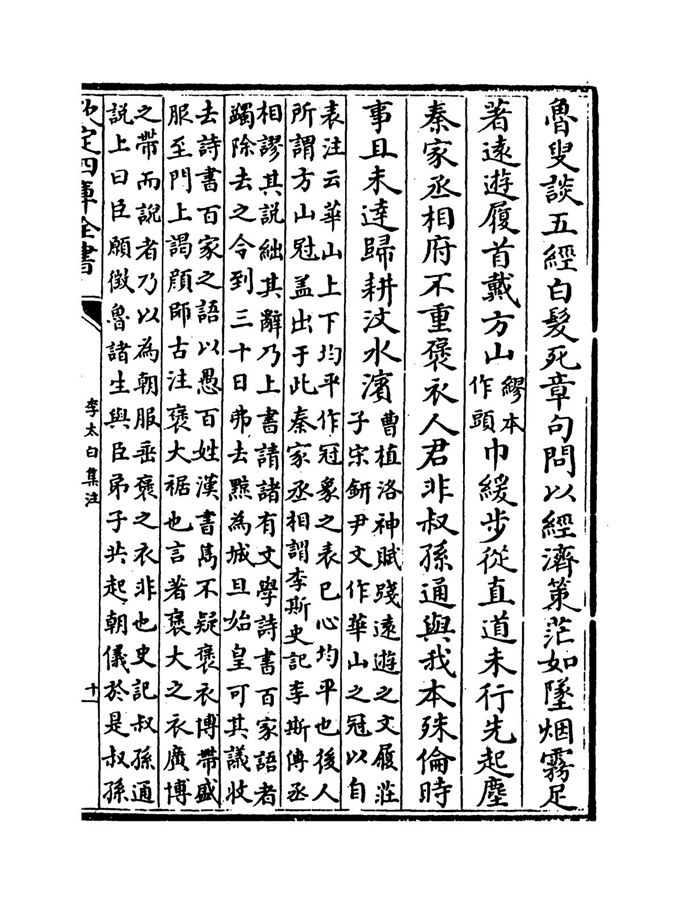 魯叟談五經白髮死章句問以經濟策茫如墜烟霧足
著逺遊履首戴方山繆本作頭巾緩步從直道未行先起塵
秦家丞相府不重褒衣人君非叔孫通與我本殊倫時
事且未逹歸耕汶水濱曹植洛神賦踐逺遊之文履莊
子宋鈃尹文作華山之冠以自
表注云華山上下均平作冠象之表已心均平也後人
所謂方山冠盖出于此秦家丞相謂李斯史記李斯傳丞
相謬其說絀其辭乃上書請諸有文學詩書百家語者
蠲除去之令到三十日弗去黥為城旦始皇可其議收
去詩書百家之語以愚百姓漢書雋不疑褒衣博帶盛
服至門上謁顔師古注褒大裾也言著褒大之衣廣博
之帶而說者乃以為朝服垂褒之衣非也史記叔孫通
說上曰臣願徵魯諸生與臣弟子共起朝儀於是叔孫
欽定四庫全書
李太白集注
十一